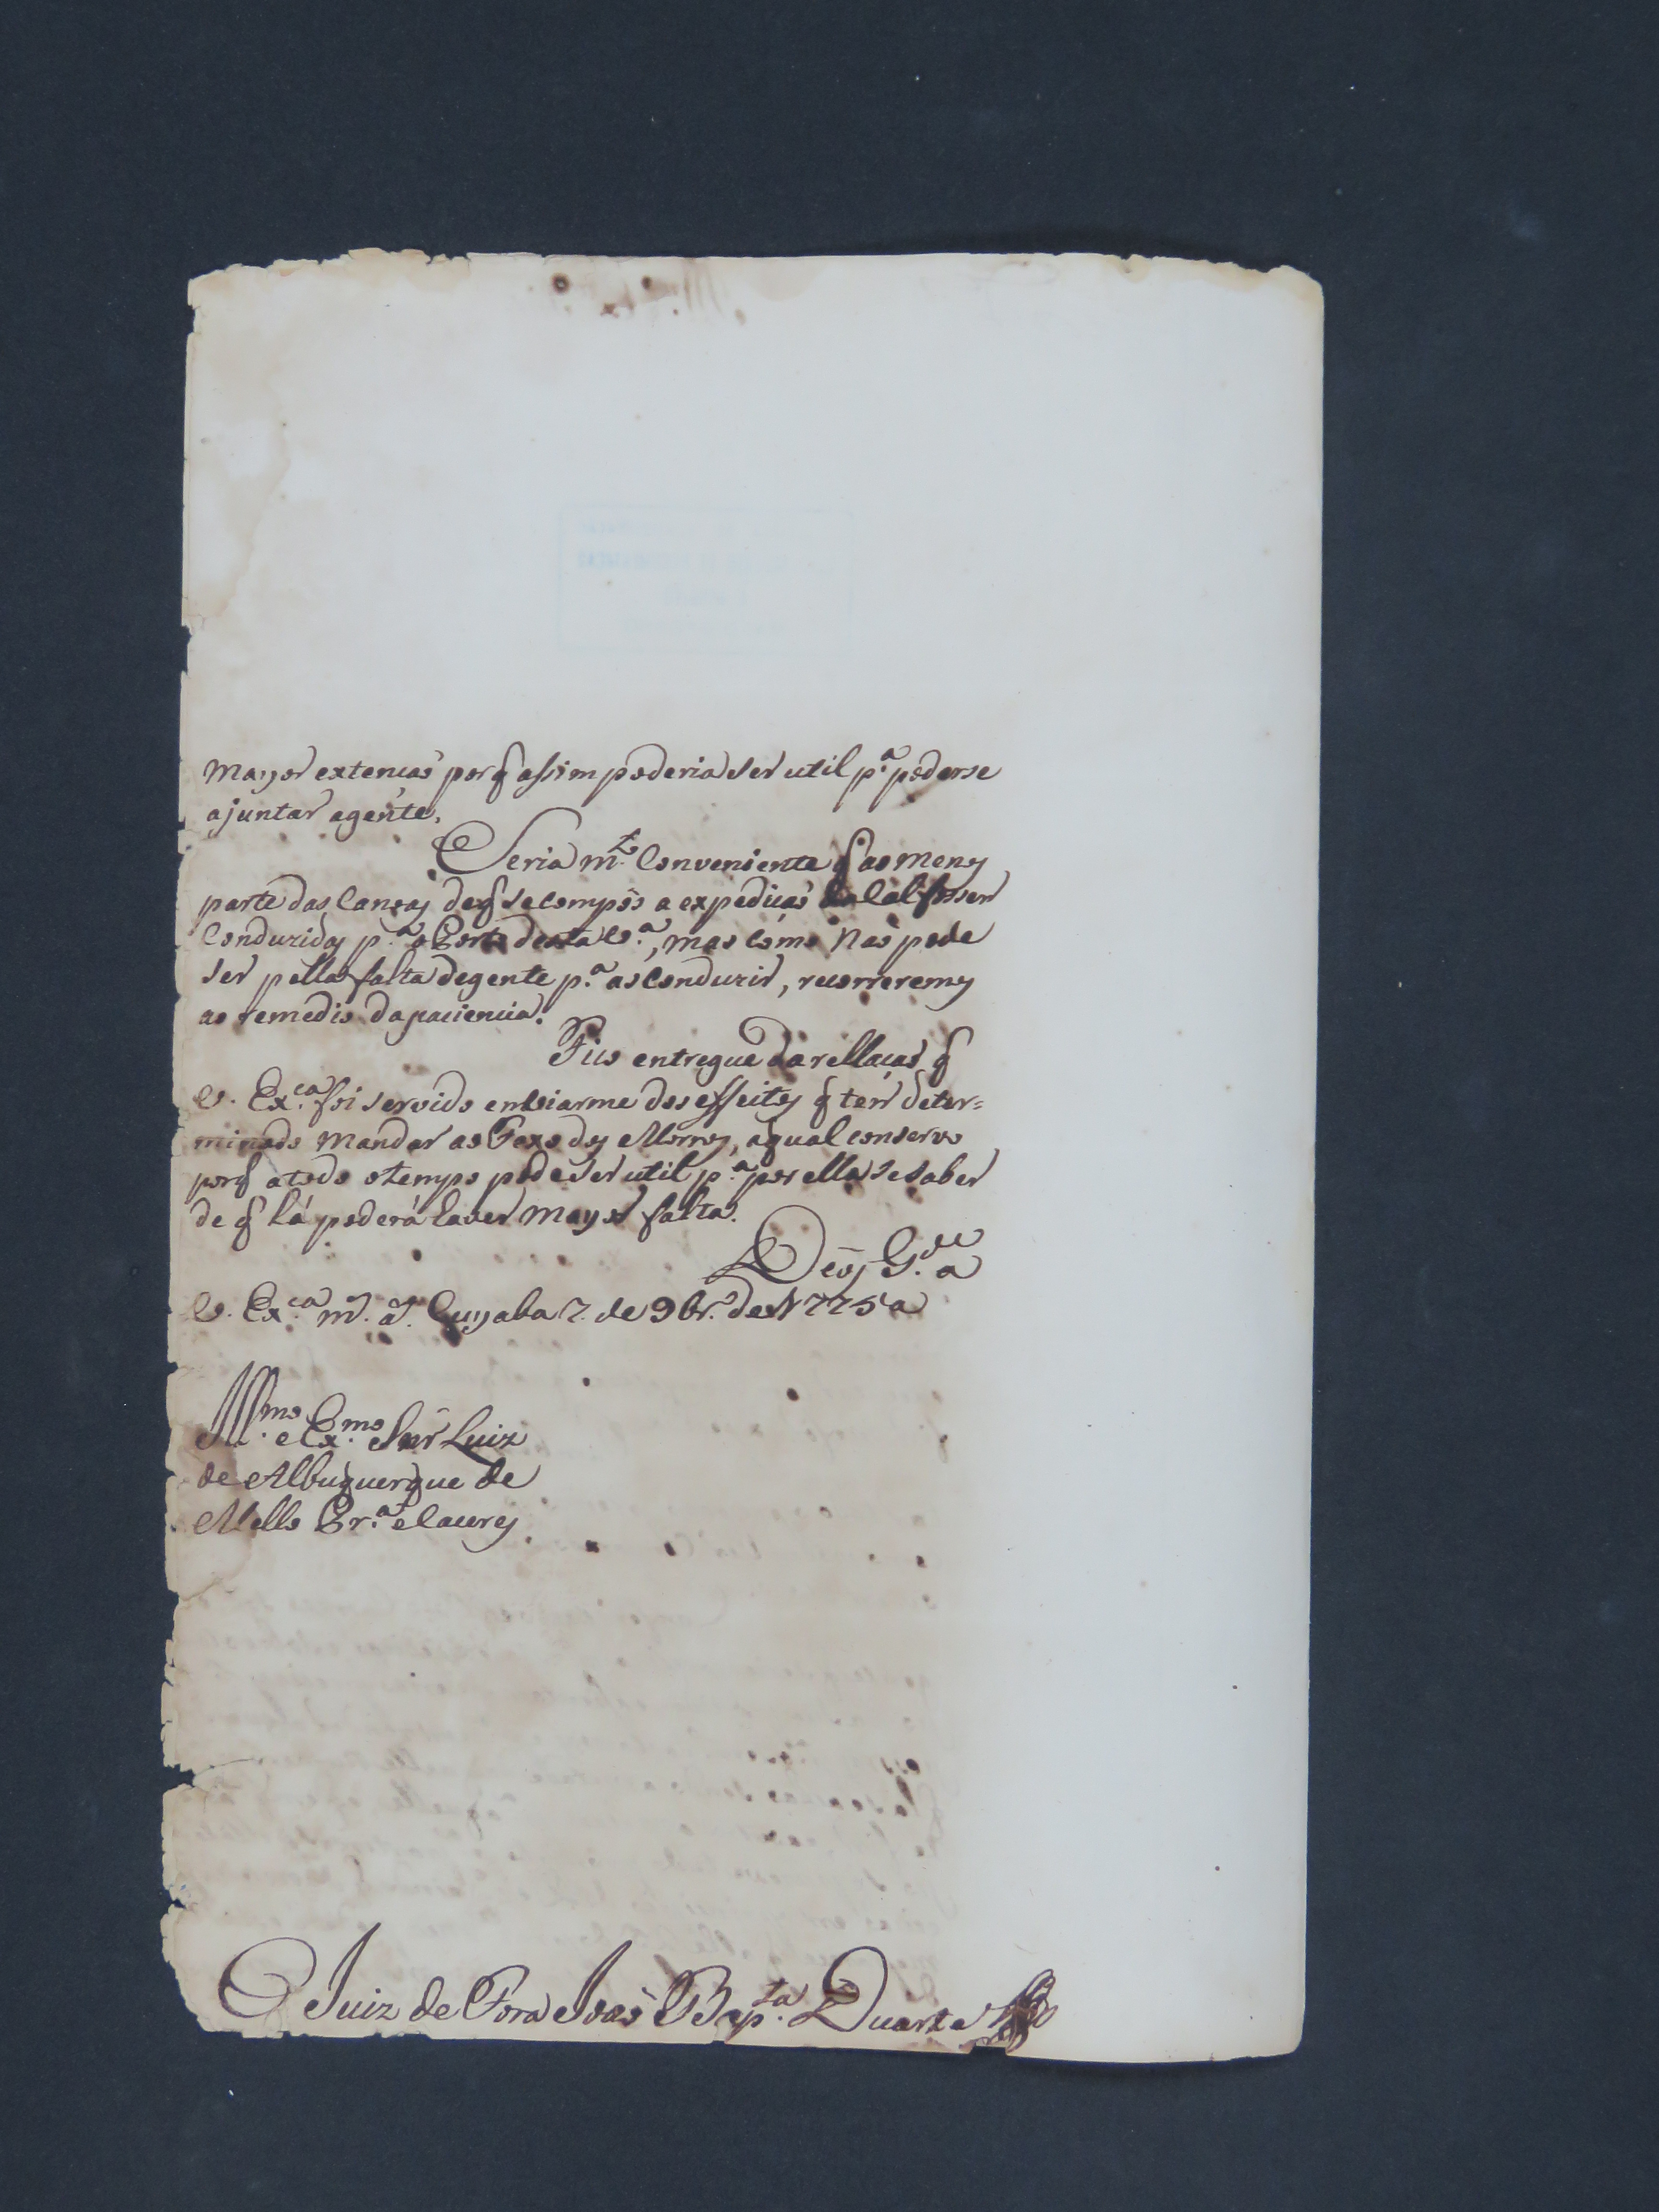 Mayor extençaõ porq̃ assim poderia ser util p.ª poderse
ajuntar agente.
Seria m.to Conveniente q̃ ao menos
parte das Canoas deq̃ secompôs a expediçaõ da Cal fossem
Conduzidas p.ª o Porto desta V.ª, mas cómo Naõ pode
ser pella falta degente p.ª as Conduzir, recorreremos
ao remedio da paciencia.
Fico entregue da rellaçaõ q̃
V. Ex.ca foi servido enviarme dos effeitos q̃ tem deter=
minado mandar ao Fexo dos Morros, aqual conservo
porq̃ atodo o tempo pode ser util p.ª por ella sesaber
de q̃ Lá poderá haver Mayor falta.
Deos G.de a
V. Ex.ca m.s a.s Cuyaba 7. de 9br.º de 1775 a
Ill.mo e Ex.mo Snr Luiz
de Albuquerque de
Mello Pr.ª e Caceres
O Juiz de Fora Joaõ Bap.ta Duarte